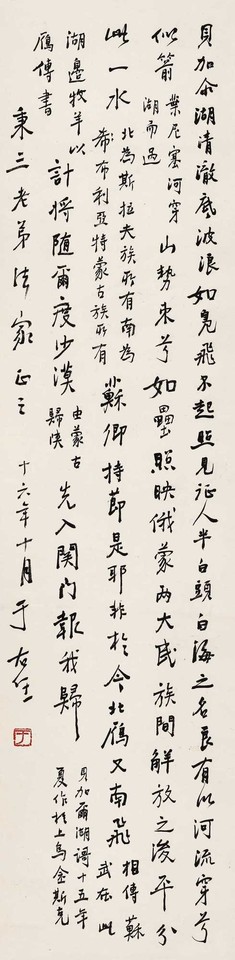 貝加尒湖清澈底波浪如鳧飛不起照見征人半白頭白海之名良有以河流穿兮
似箭葉尼塞河穿湖而過山勢束兮如壘照映俄蒙兩大民族間解放之後平分
此一水北為斯拉夫族所有南為希布利亞特蒙古族所有蘇卿持節是耶非於今北雁又南飛相傳蘇武在此
湖邊牧羊以雁傳書計將隨爾度沙漠由蒙古歸陝先入関門報我歸貝加爾湖謌十五年夏作於上烏金斯克
秉三老弟法家正之十六年十月于右任